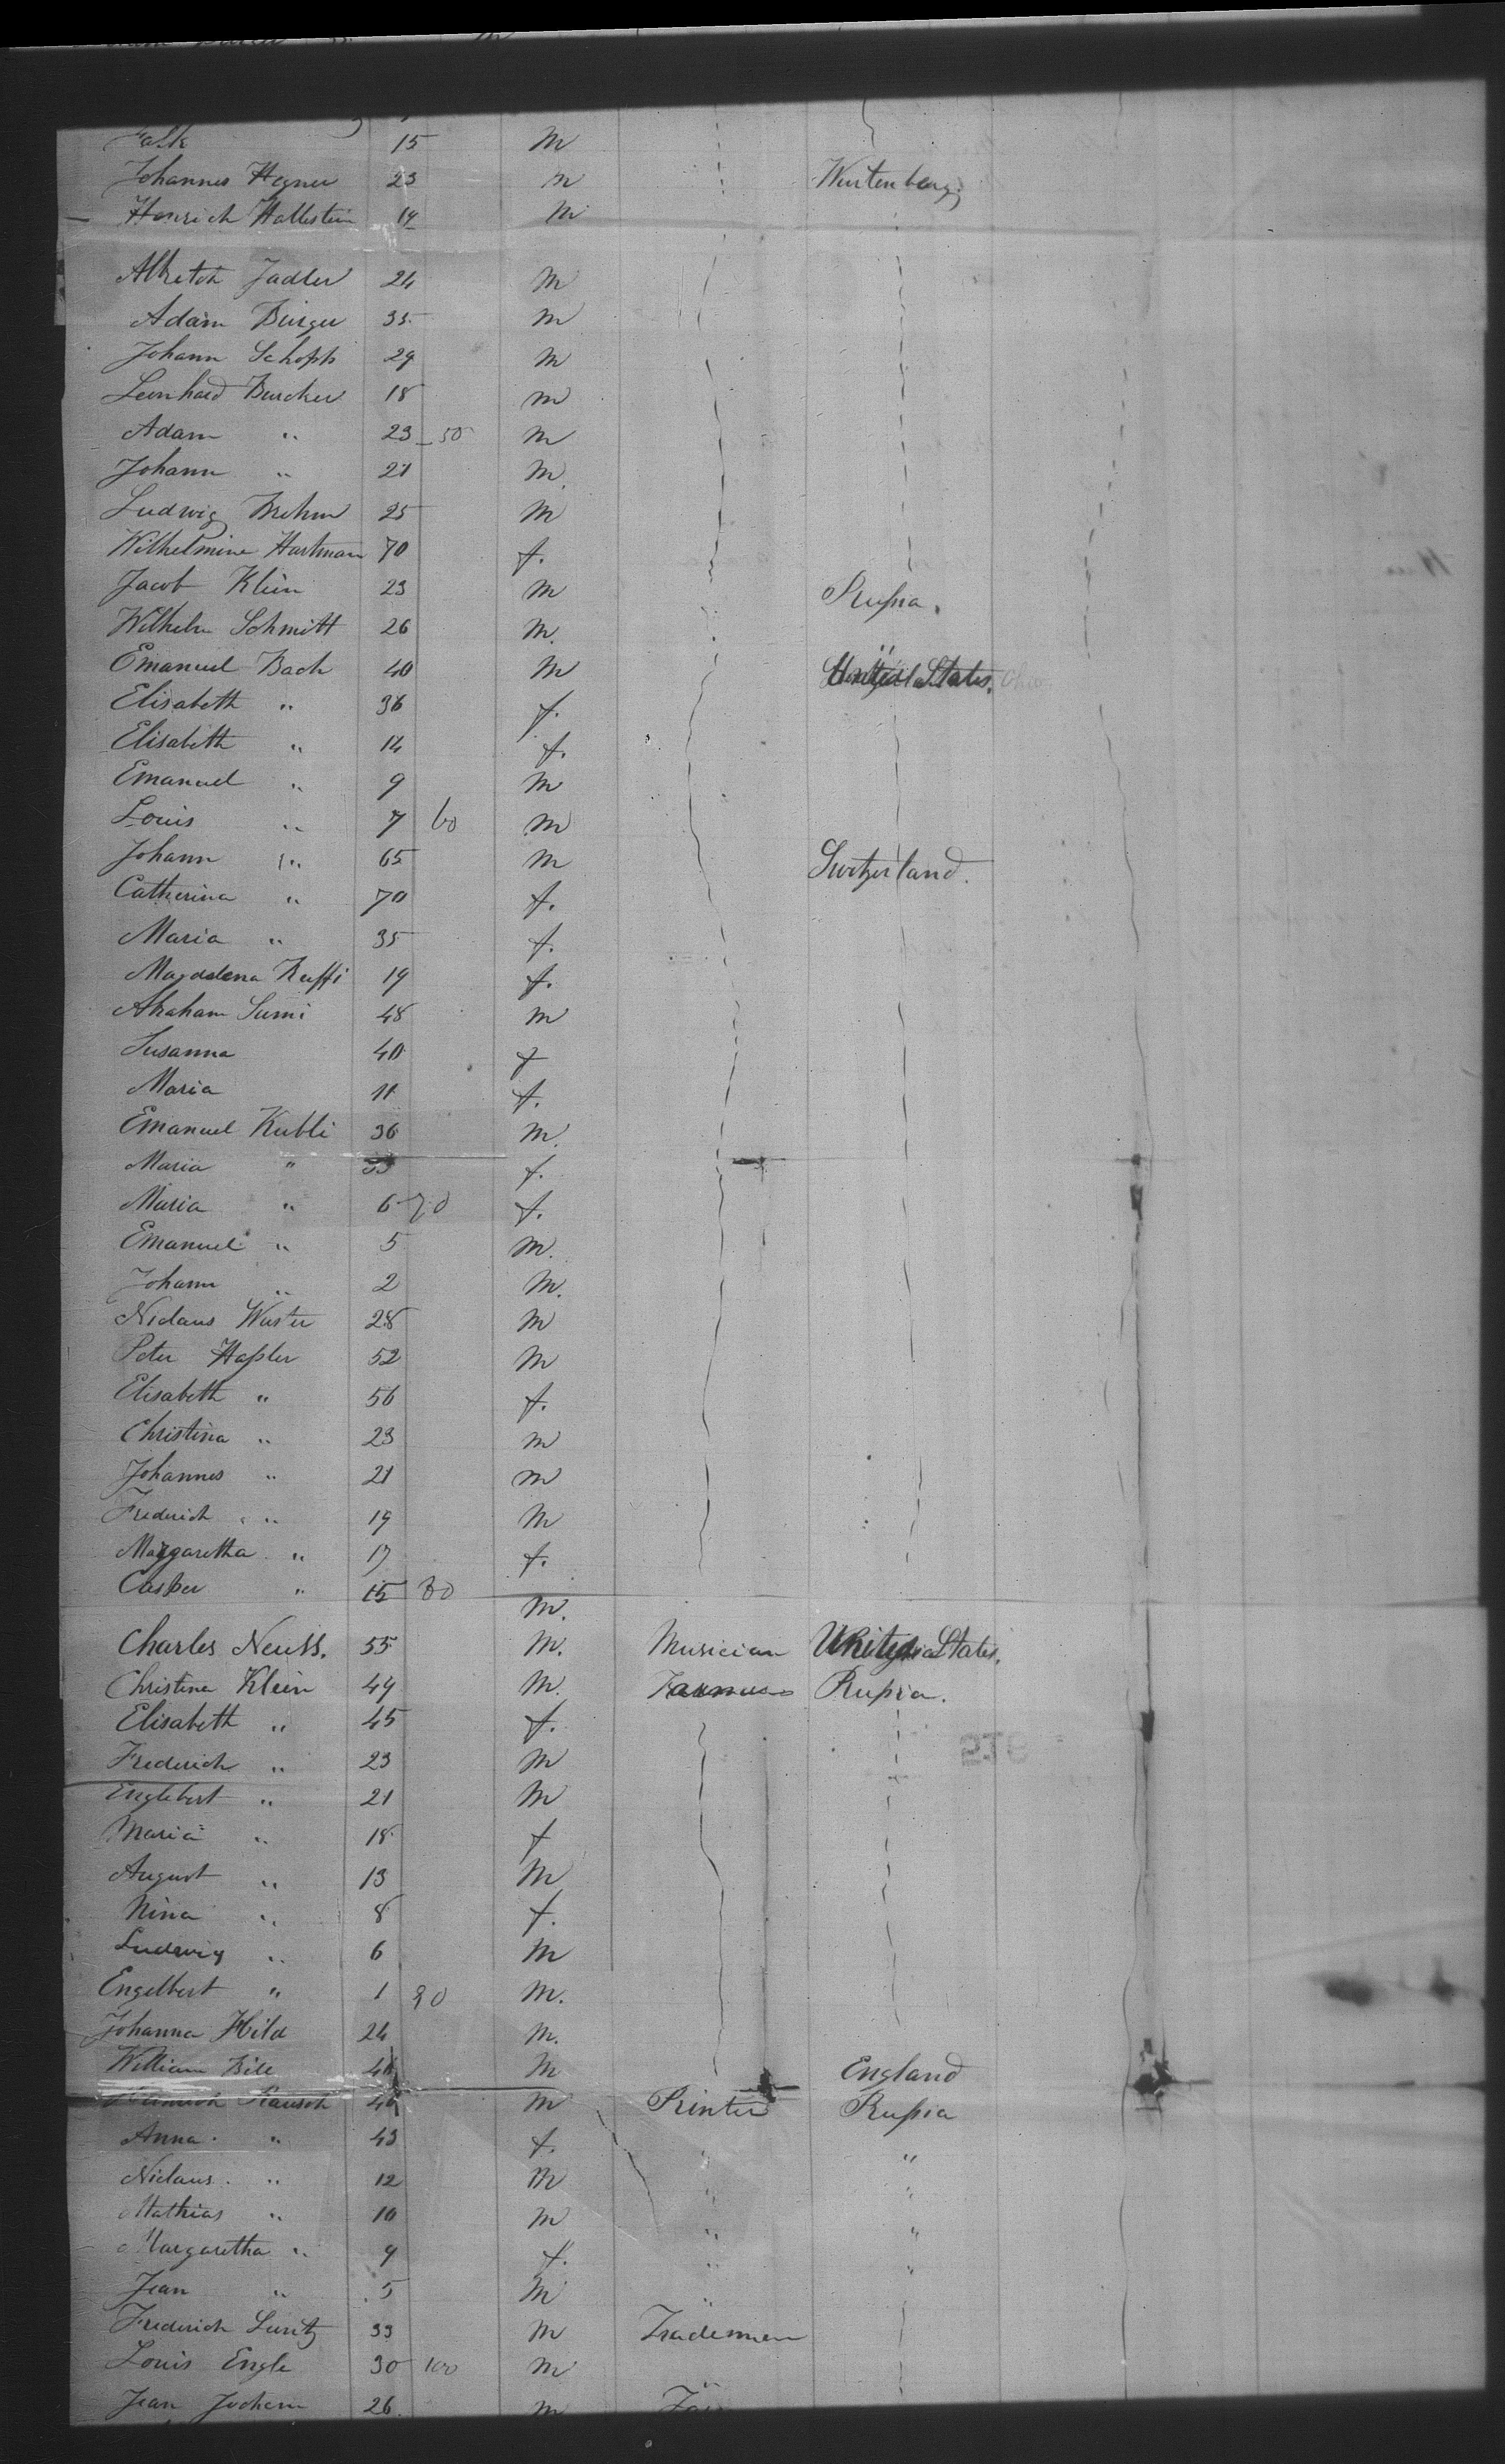 Falk 15 m
Johannes Hegner 23 m Wurtenberg
Henrich Hallestein 19 m
Albretch Jadler 24 m
Adam Burger 35 m
Johann Schopp 29 m
Leonhard Burcker 18 m
Adam " 23 50 m
Johann " 21 m
Ludwig Brehm 25 m
Wilhelmine Hartman 70 f.
Jacob Klein 23 m Prussia.
Wilhelm Schmitt 26 m "
Emanuel Bach 40 m United States.
Elisabeth " 36 f.
Elisabeth " 14 f.
Emanuel " 9 m
Louis " 7 60 m
Johann " 65 m Switzerland.
Catherina " 70 f.
Maria " 35 f.
Magdalena 19 f.
Abraham Summi 48 m
Susanna 40 f
Maria 11 f.
Emanuel Kubli 36 m.
Maria " f.
Maria " 6 70 f.
Emanuel " 5 m.
Johann " 2 m.
Niclaus 28 m
Peter Hassler 52 m
Elisabeth " 56 f.
Christina " 23 m
Johannes " 21 m
Frederich " 19 m
Margaretha " 17 f.
Casper " 15 80 m.
Charles Neuss. 55 m. Musician United States.
Christine Klein 49 m. Prussia.
Elisabeth " 45 f.
Frederich " 23 m
Englebert " 21 m
Maria " 18 f
August " 13 m
Nina " 8 f.
Ludwig " 6 m
Engelbert " 1 90 m.
Johanna Hild 24 m.
William m England
Rausch m Printer Prussia
Anna " 43 f. " "
Niclaus " 12 m " "
Mathias " 10 m " "
Margaretha " 9 f. " "
Jean " 5 m "
Frederich Luntz 33 m Trademan
Louis Engle 30 100 m "
Jean Jochem 26 m